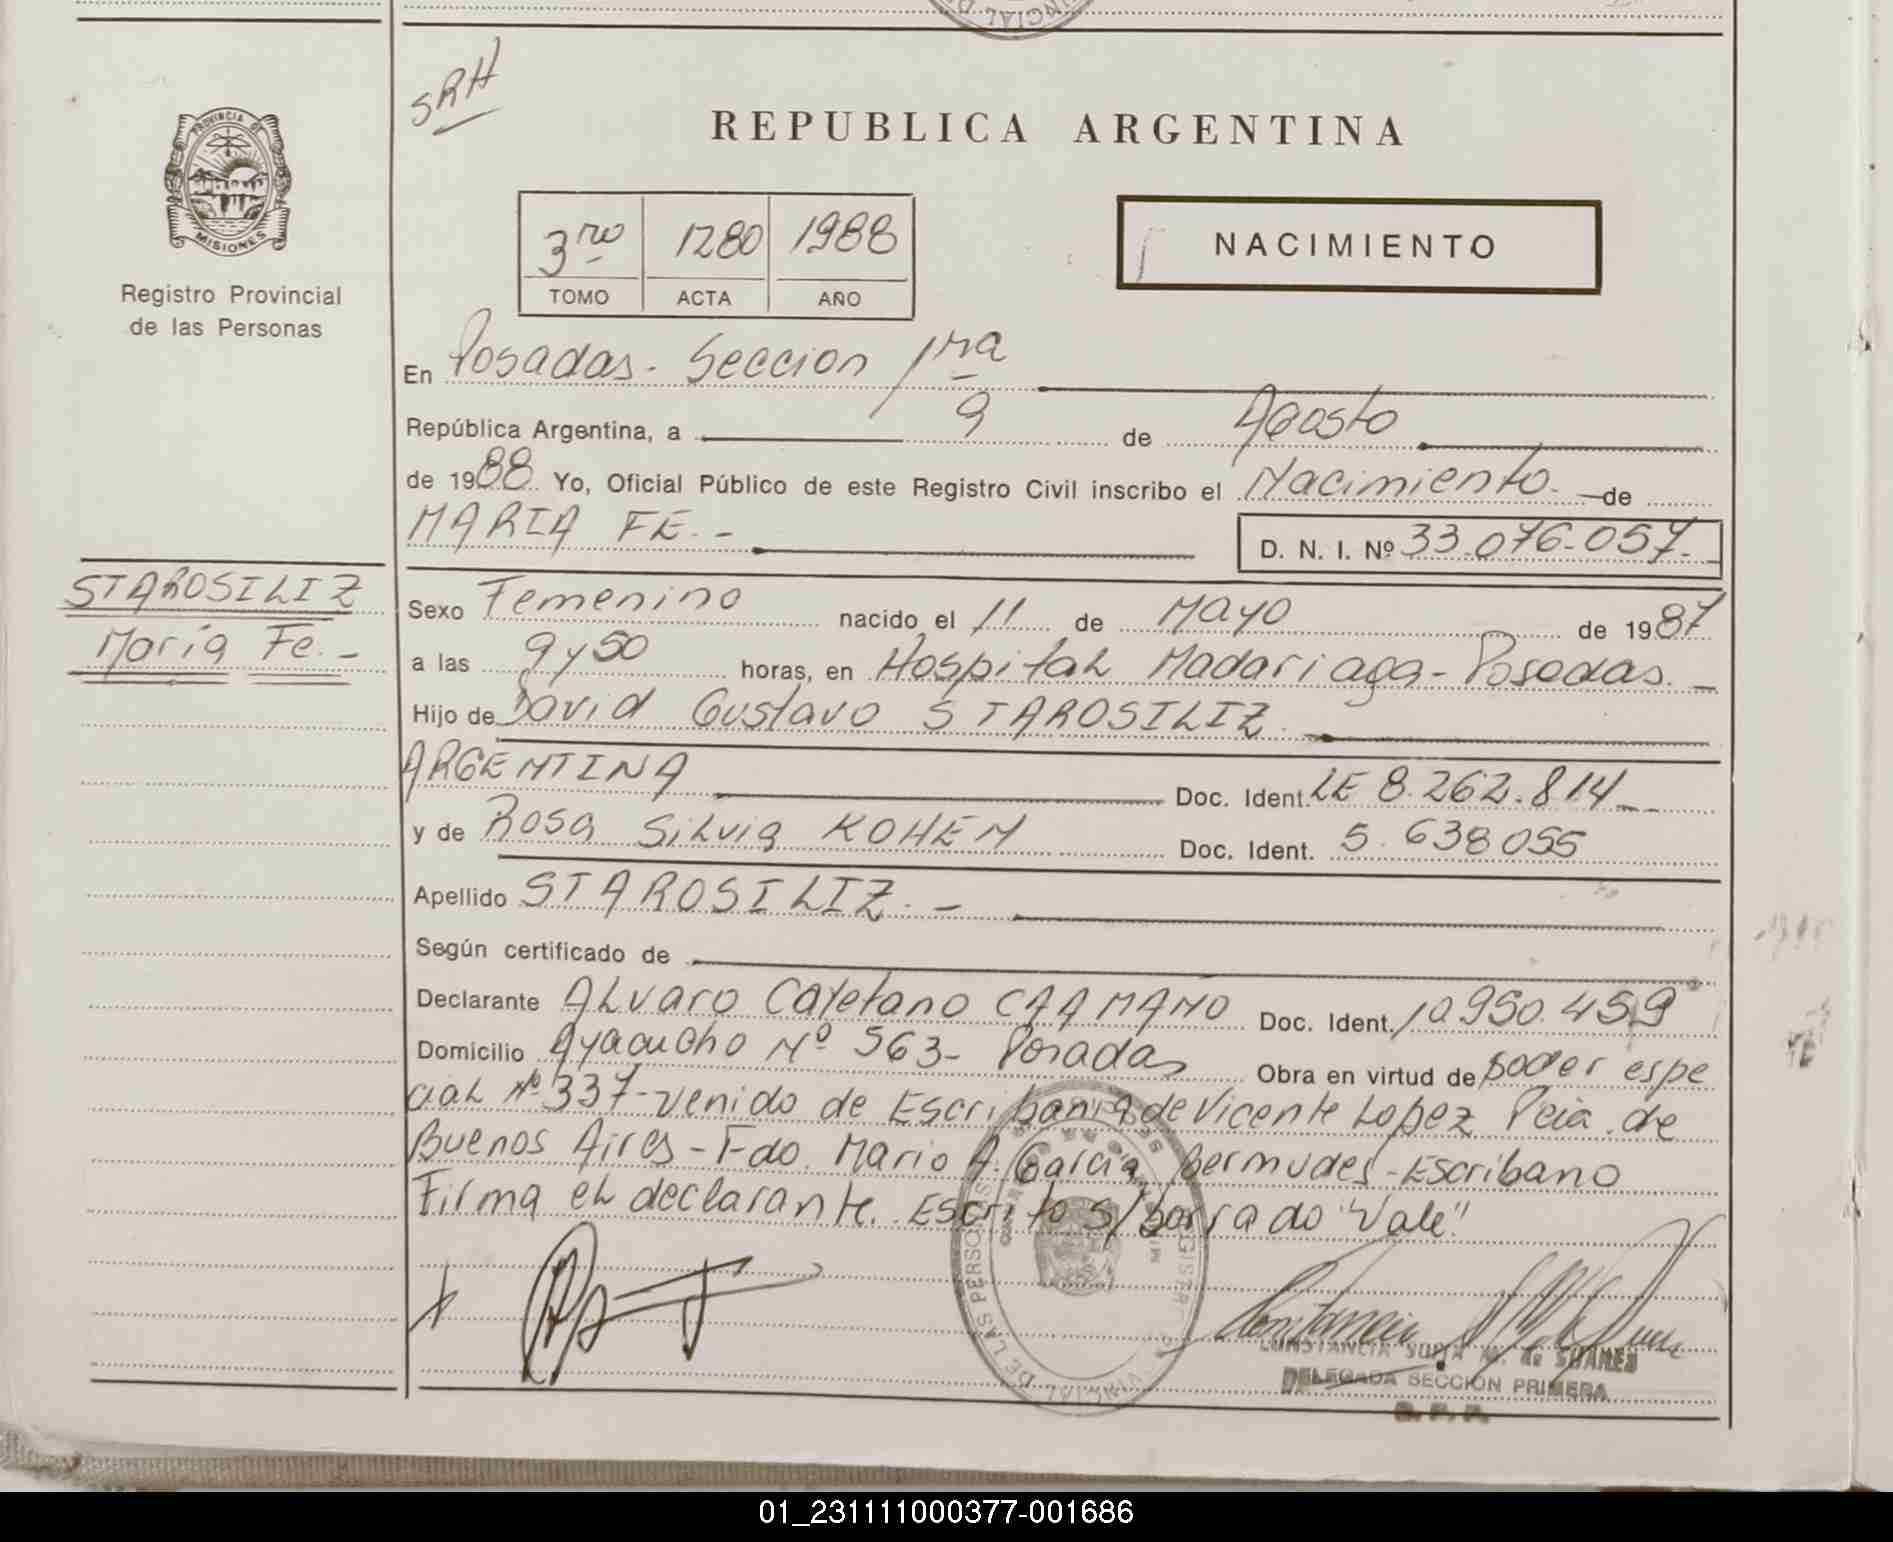 SRH
REPUBLICA ARGENTINA
PROVINCIA DE
MISIONES
Registro Provincial
de las Personas
3ro 1280 1988
TOMO ACTA AÑO
NACIMIENTO
En Posadas. Seccion 1ra
República Argentina, a 9 de Agosto
de 1988 Yo, Oficial Público de este Registro Civil inscribo el Nacimiento. de
MARIA FE.-
D. N. I. Nº 33.076.057.
STAROSILIZ
María Fe.-
Sexo Femenino nacido el 11 de Mayo de 1987
a las 9 y 50 horas, en Hospital Madariaga - Posadas.
Hijo de David Gustavo STAROSILIZ.
ARGENTINA Doc. Ident. LE 8.262.814
y de Rosa Silvia KOHEN Doc. Ident. 5.638055
Apellido STAROSILIZ.-
Según certificado de
Declarante Alvaro Cayetano CAAMAÑO Doc. Ident. 10950.459
Domicilio Ayacucho Nº 563- Posadas Obra en virtud de poder espe
cial Nº 337-venido de Escribania de Vicente Lopez Pcia. de
Buenos Aires - Fdo. Mario A. Garcia Bermudes - Escribano
Firma el declarante. Escrito s/borrado "Vale"
CONSTANCIA de SUARES
DELEGADA SECCION PRIMERA
R. P. P.
01_231111000377-001686